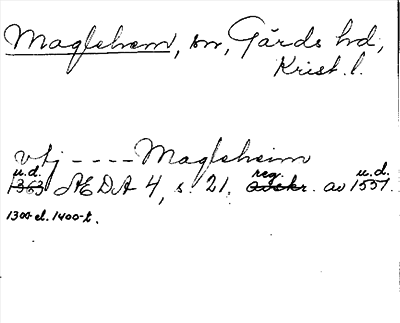 Maglehem, sn, Gärds hd,
Krist. l.
vtj ---- Magleheim
u.d. reg. u.d.
1363 ÆDA 4, s. 21, avskr. av 1551.
1300-el. 1400-t.